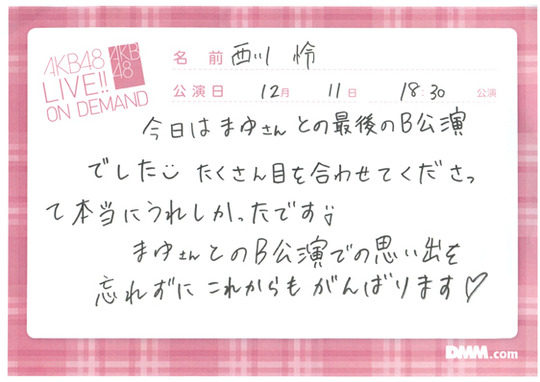 AKB48
LIVE!!
ON DEMAND
AKB
48
名前 西川 怜
公演日 12月 11日 18:30 公演
今日はまゆさんとの最後のB公演
でした たくさん目を合わせてくださっ
て本当にうれしかったです
まゆさんとのB公演での思い出を
忘れずに これからも がんばります♡
DMM.com